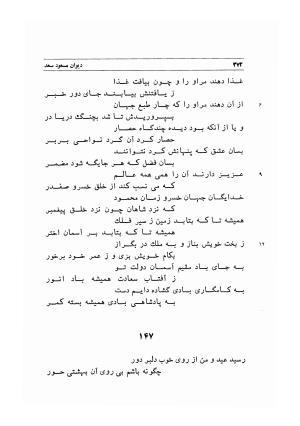 ۲۷۲
دیوان مسعود سعد
غذا دهند مراو را و چون بیافت غذا
ز یافتنش بیابند جای دور خبر
۶
از آن دهند مراو را که چار طبع جهان
بپروریدش تا شد بچنگت دریا در
و یا از آنکه بود دیده چندگاه حصار
حصار کرد آن گرد نواحی بربر
بسان عشق که پنهانش کرد نتوانند
بسان فضل که هر جایگه شود مضمر
۹
عزیز دارند آن را همی همه عالم
که می نسب کند از خلق خسرو صفدر
خدایگان جهان خسرو زمان محمود
که نزد شاهان چون نزد خلق پیغمبر
همیشه تا که بتابد زمین ز سیر فلک
همیشه تا که بتابد بر آسمان اختر
۱۲
ز بخت خویش بناز و به ملک در بگراز
بکام خویش بزی و ز عمر خود برخور
به جای باد مقیم آسمان دولت تو
ز آفتاب سعادت همیشه باد انور
به کامگاری بادی گشاده دایم دست
به پادشاهی بادی همیشه بسته کمر
۱۴۷
رسید عید و من از روی خوب دلبر دور
چگونه باشم بی روی آن بهشتی حور